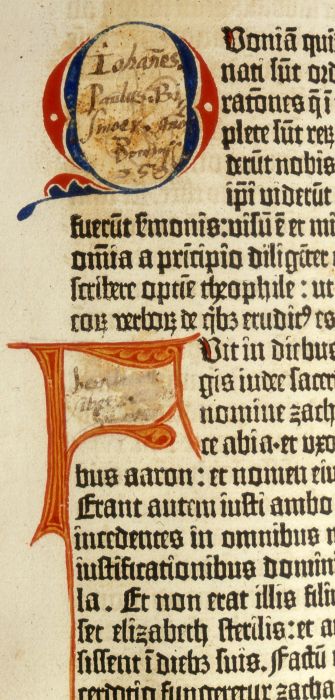 Q
Iohanēs
Paulus
58
Uoniā qui
nati sūt ord
ratōnes q̄ ī
plete sūt rer
derūt nobis
ip̄i uiderūt
fuerūt ẜmonis: visū ē et mi
omīa a prīcipio diligēter
scribere optīe theophile: ut
eoꝝ verboꝝ de q̇bꝫ eruditꝰ es
F
Vit in diebus
gis iudee sacer
nomine zach
ce abia. et uxo
bus aaron: et nomen eiu
Erant autem iusti ambo
incedentes in omnibus m
iustificationibus domin
la. Et non erat illis filiu
set elizabeth sterilis: et a
sissent ī diebꝫ suis. Factū
cerdotio fungeretur zacha